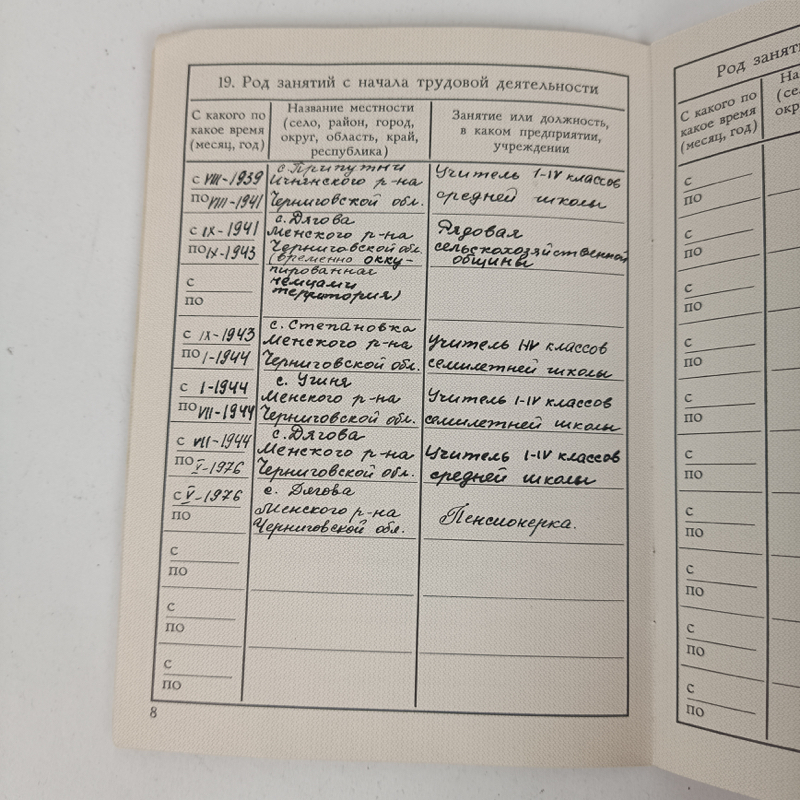 19. Род занятий с начала трудовой деятельности
С какого по
какое время
(месяц, год)
Название местности
(село, район, город,
округ, область, край,
республика)
Занятие или должность,
в каком предприятии,
учреждении
с VIII-1939
по VIII-1941
с. Припутни
Ичнянского р-на
Черниговской обл.
Учитель I-IV классов
средней школы
с IX-1941
по IX-1943
с. Дягова
Менского р-на
Черниговской обл.
(временно окку-
пированная
немцами
территория)
Рядовая
сельскохозяйственной
общины
с
по
с IX-1943
по I-1944
с. Степановка
Менского р-на
Черниговской обл.
Учитель I-IV классов
семилетней школы
с I-1944
по VII-1944
с. Ушня
Менского р-на
Черниговской обл.
Учитель I-IV классов
семилетней школы
с VII-1944
по V-1976
с. Дягова
Менского р-на
Черниговской обл.
Учитель I-IV классов
средней школы
с V-1976
по
с. Дягова
Менского р-на
Черниговской обл.
Пенсионерка.
с
по
с
по
с
по
8
Род заняти
С какого по
какое время
(месяц, год)
На
(сел
окр
с
по
с
по
с
по
с
по
с
по
с
по
с
по
с
по
с
по
с
по